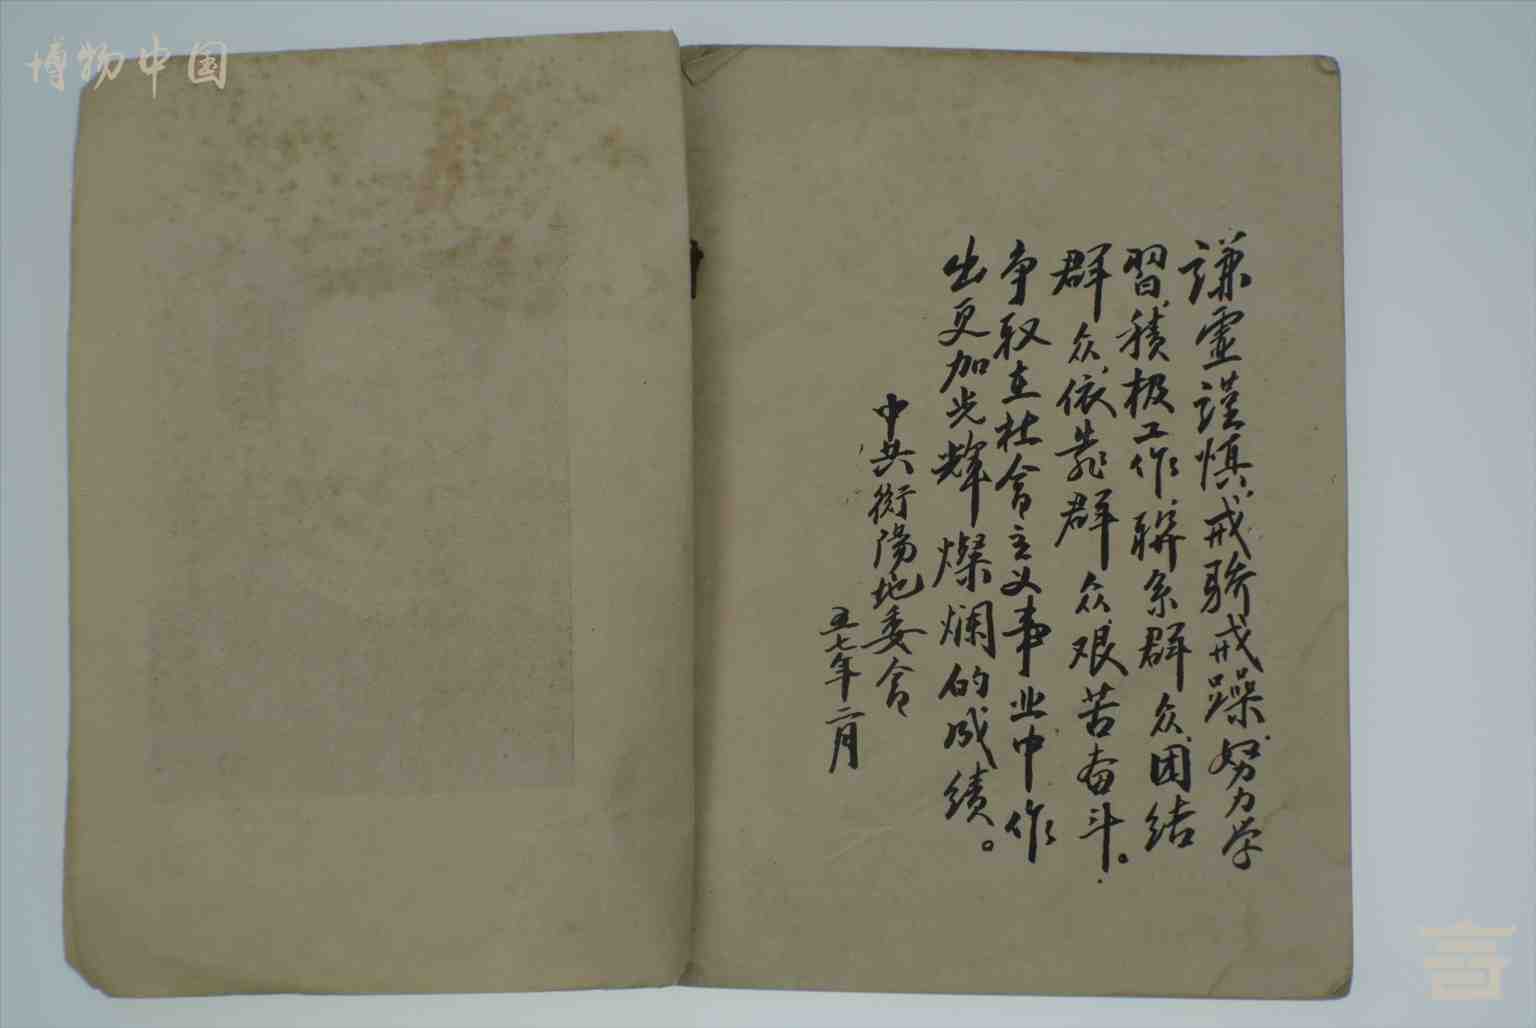 博物中国
謙虛謹慎、戒骄戒躁、努力学
習、積极工作、联系群众、团结
群众、依靠群众、艰苦奋斗。
争取在社会主义事业中作
出更加光辉燦斓的成績。
中共衡陽地委会
五七年二月